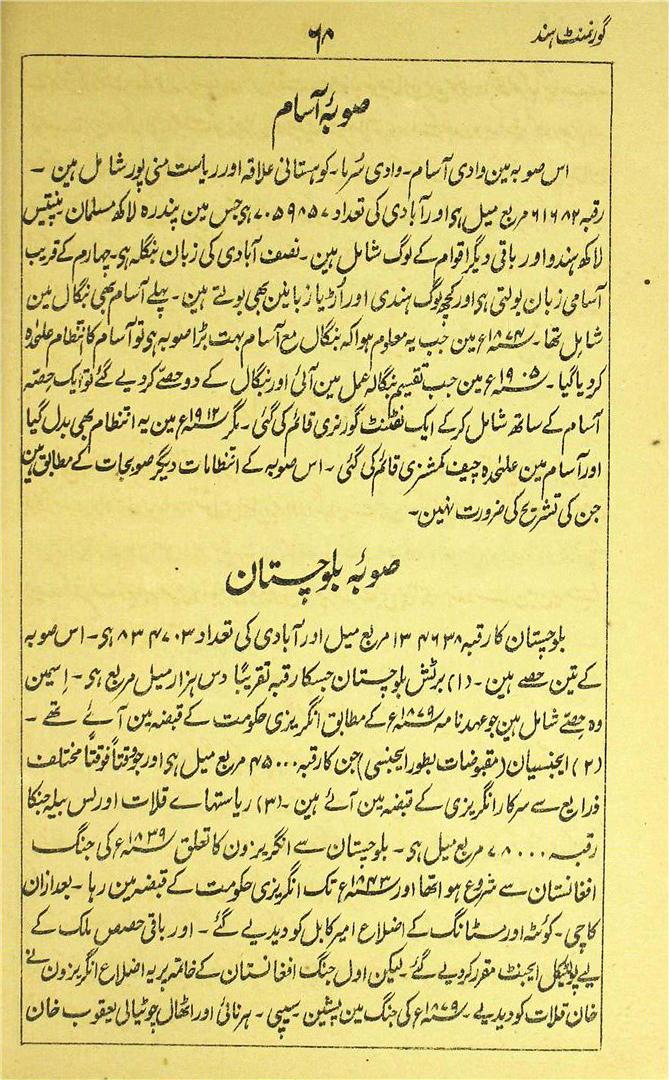 گورنمنٹ ہند
۶۸
صوبۂ آسام
اس صوبہ مین وادی آسام ۔ وادی سُرما ۔ کوہستانی علاقہ اور ریاست منی پور شامل ہین ۔
رقبہ ۶۱۶۸۲ مربع میل ہی اور آبادی کی تعداد ۷۰۵۹۸۵۷ ہی جس مین پندرہ لاکھ مسلمان پینتیس
لاکھ ہندو اور باقی دیگر اقوام کے لوگ شامل ہین ۔ نصف آبادی کی زبان بنگلہ ہی ۔ چہارم کے قریب
آسامی زبان بولتی ہی اور کچھ لوگ ہندی اور اُڑیا زبانین بھی بولتے ہین ۔ پہلے آسام بھی بنگال مین
شامل تھا ۔ ۱۸۷۴ء مین جب یہ معلوم ہوا کہ بنگال مع آسام بہت بڑا صوبہ ہی تو آسام کا انتظام علٰحدہ
کر دیا گیا ۔ ۱۹۰۵ء مین جب تقسیم بنگالہ عمل مین آئی اور بنگال کے دو حصے کر دیے گئے تو ایک حصّہ
آسام کے ساتھ شامل کر کے ایک لفٹنٹ گورنری قائم کی گئی ۔ مگر ۱۹۱۲ء مین یہ انتظام بھی بدل گیا
اور آسام مین علٰحدہ چیف کمشنری قائم کی گئی ۔ اس صوبہ کے انتظامات دیگر صوبجات کے مطابق ہین
جن کی تشریح کی ضرورت نہین ۔
صوبۂ بلوچستان
بلوچستان کا رقبہ ۱۳۴۶۳۸ مربع میل اور آبادی کی تعداد ۸۳۴۷۰۳ ہی ۔ اس صوبہ
کے تین حصے ہین ۔ (۱) برٹش بلوچستان جسکا رقبہ تقریباً دس ہزار میل مربع ہی ۔ اِسمین
وہ حصّے شامل ہین جو عہد نامہ ۱۸۷۹ء کے مطابق انگریزی حکومت کے قبضہ مین آئے تھے ۔
(۲) ایجنسیان (مقبوضات بطور ایجنسی) جن کا رقبہ ۴۵۰۰۰ مربع میل ہی اور جو وقتاً فوقتاً مختلف
ذرایع سے سرکار انگریزی کے قبضہ مین آئے ہین ۔ (۳) ریاستہاے قلات اور لس بیلہ جنکا
رقبہ ۷۸۰۰۰ مربع میل ہی ۔ بلوچستان سے انگریزون کا تعلق ۱۸۳۹ء کی جنگ
افغانستان سے شروع ہوا تھا اور ۱۸۴۳ء تک انگریزی حکومت کے قبضہ مین رہا ۔ بعد ازان
کاچی ۔ کوئٹہ اور مسٹانگ کے اضلاع امیر کابل کو دیدیے گئے ۔ اور باقی حصص ملک کے
لیے پولیٹیکل ایجنٹ مقرر کر دیے گئے ۔ لیکن اول جنگ افغانستان کے خاتمہ پر یہ اضلاع انگریزون نے
خان قلات کو دیدیے ۔ ۱۸۷۹ء کی جنگ مین پشین سیبی ۔ ہرنائی اور اٹھال چوٹیالی یعقوب خان